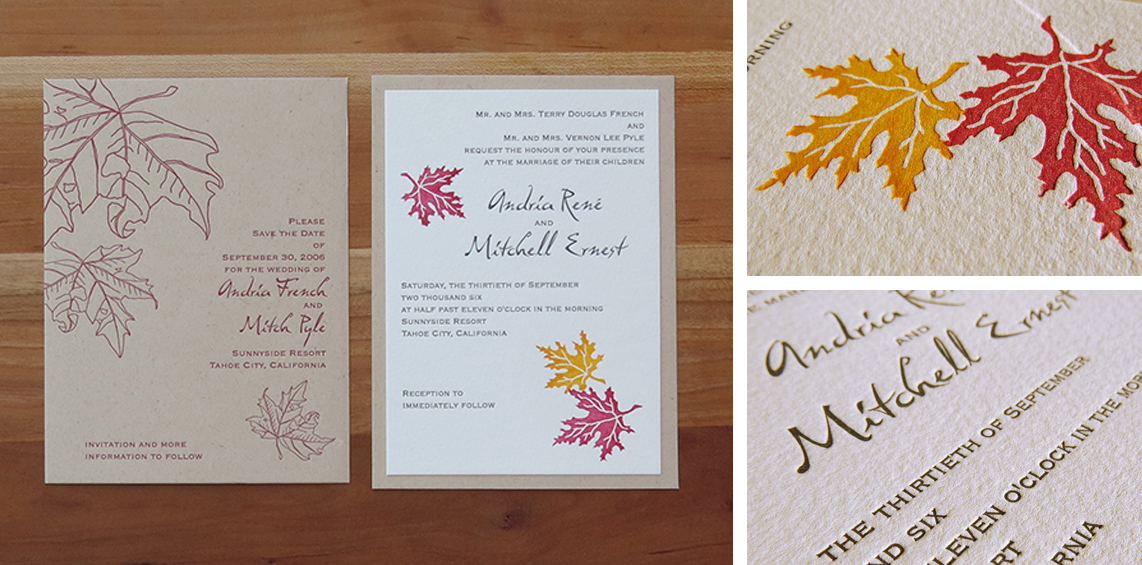 PLEASE
SAVE THE DATE
OF
SEPTEMBER 30, 2006
FOR THE WEDDING OF
Andria French
AND
Mitch Pyle
SUNNYSIDE RESORT
TAHOE CITY, CALIFORNIA
INVITATION AND MORE
INFORMATION TO FOLLOW
MR. AND MRS. TERRY DOUGLAS FRENCH
AND
MR. AND MRS. VERNON LEE PYLE
REQUEST THE HONOUR OF YOUR PRESENCE
AT THE MARRIAGE OF THEIR CHILDREN
Andria René
AND
Mitchell Ernest
SATURDAY, THE THIRTIETH OF SEPTEMBER
TWO THOUSAND SIX
AT HALF PAST ELEVEN O'CLOCK IN THE MORNING
SUNNYSIDE RESORT
TAHOE CITY, CALIFORNIA
RECEPTION TO
IMMEDIATELY FOLLOW
ORNING
E MAR
Andria Ren
AND
Mitchell Ernest
THE THIRTIETH OF SEPTEMBER
ND SIX
ELEVEN O'CLOCK IN THE MO
RT
RNIA